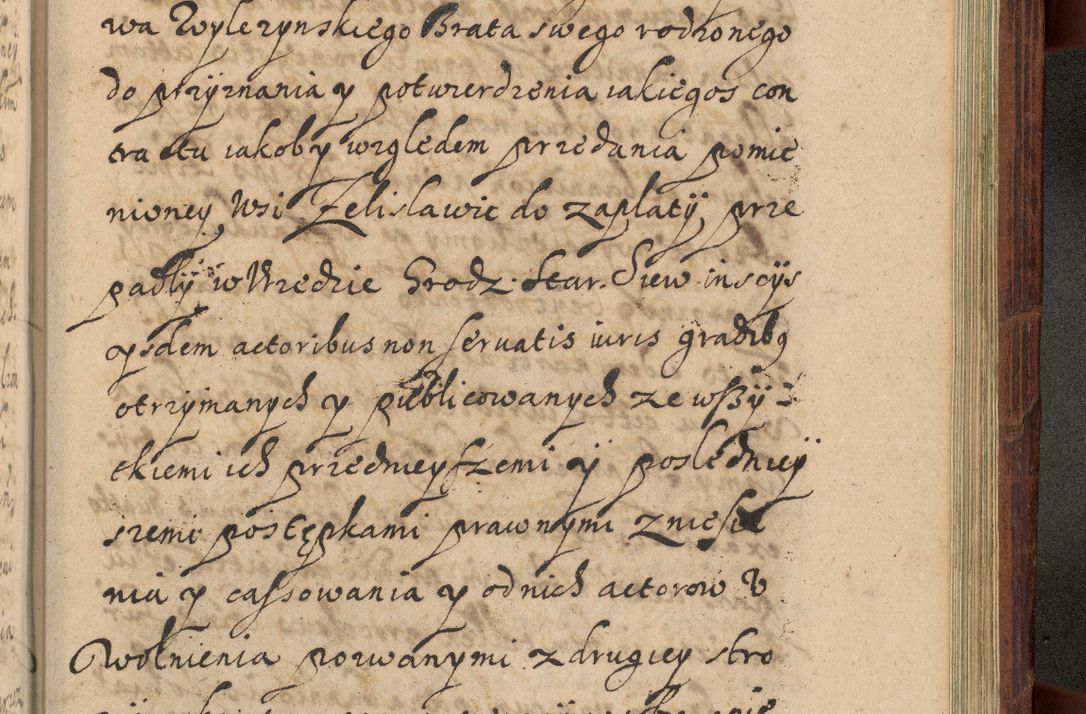 wa Wylezynskiego Brata swego rodzonego
do przyznania y potwierdzenia iakiegos con
tractu iakoby względem przedania pomie
nioney Wsi Zelislawic do zaplatÿ prze
padłÿ w Urzędzie Grodz: Star. Siew in scÿs
ÿsdem actoribus non seruatis iuris gradibq
otrzÿmanych y publicowanych ze wszÿ
tkiemi ich przednieyszemi ÿ poslednieÿ
szemi postępkami prawnymi zniesie
nia y cassowania y od nich actorow U
Wolnienia pozwanymi z drugiey stro